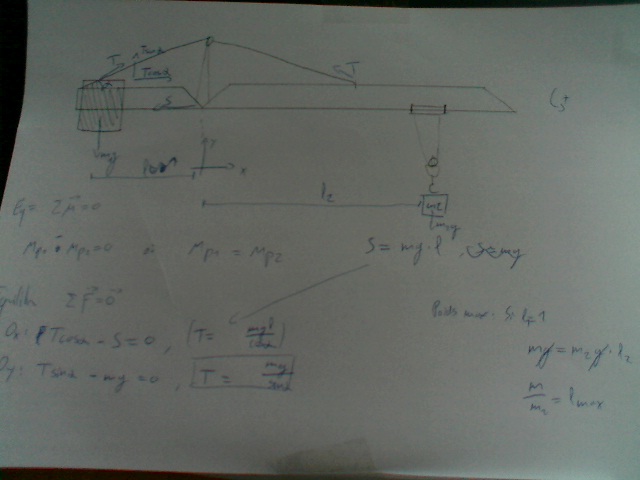 T Tsinα
Tcosα
T
S
mg
Y
X
l2
m2
m2g
Eq= ΣM=0
Mp1 + Mp2=0 Mp1 = Mp2
S= mg·l
ΣF=0
Ox: Tcosα - S=0, (T= mgl/cosα)
Oy: Tsinα - mg=0, T= mg/sinα
max. Si l=1
mg=m2g·l2
m/m2 = lmax